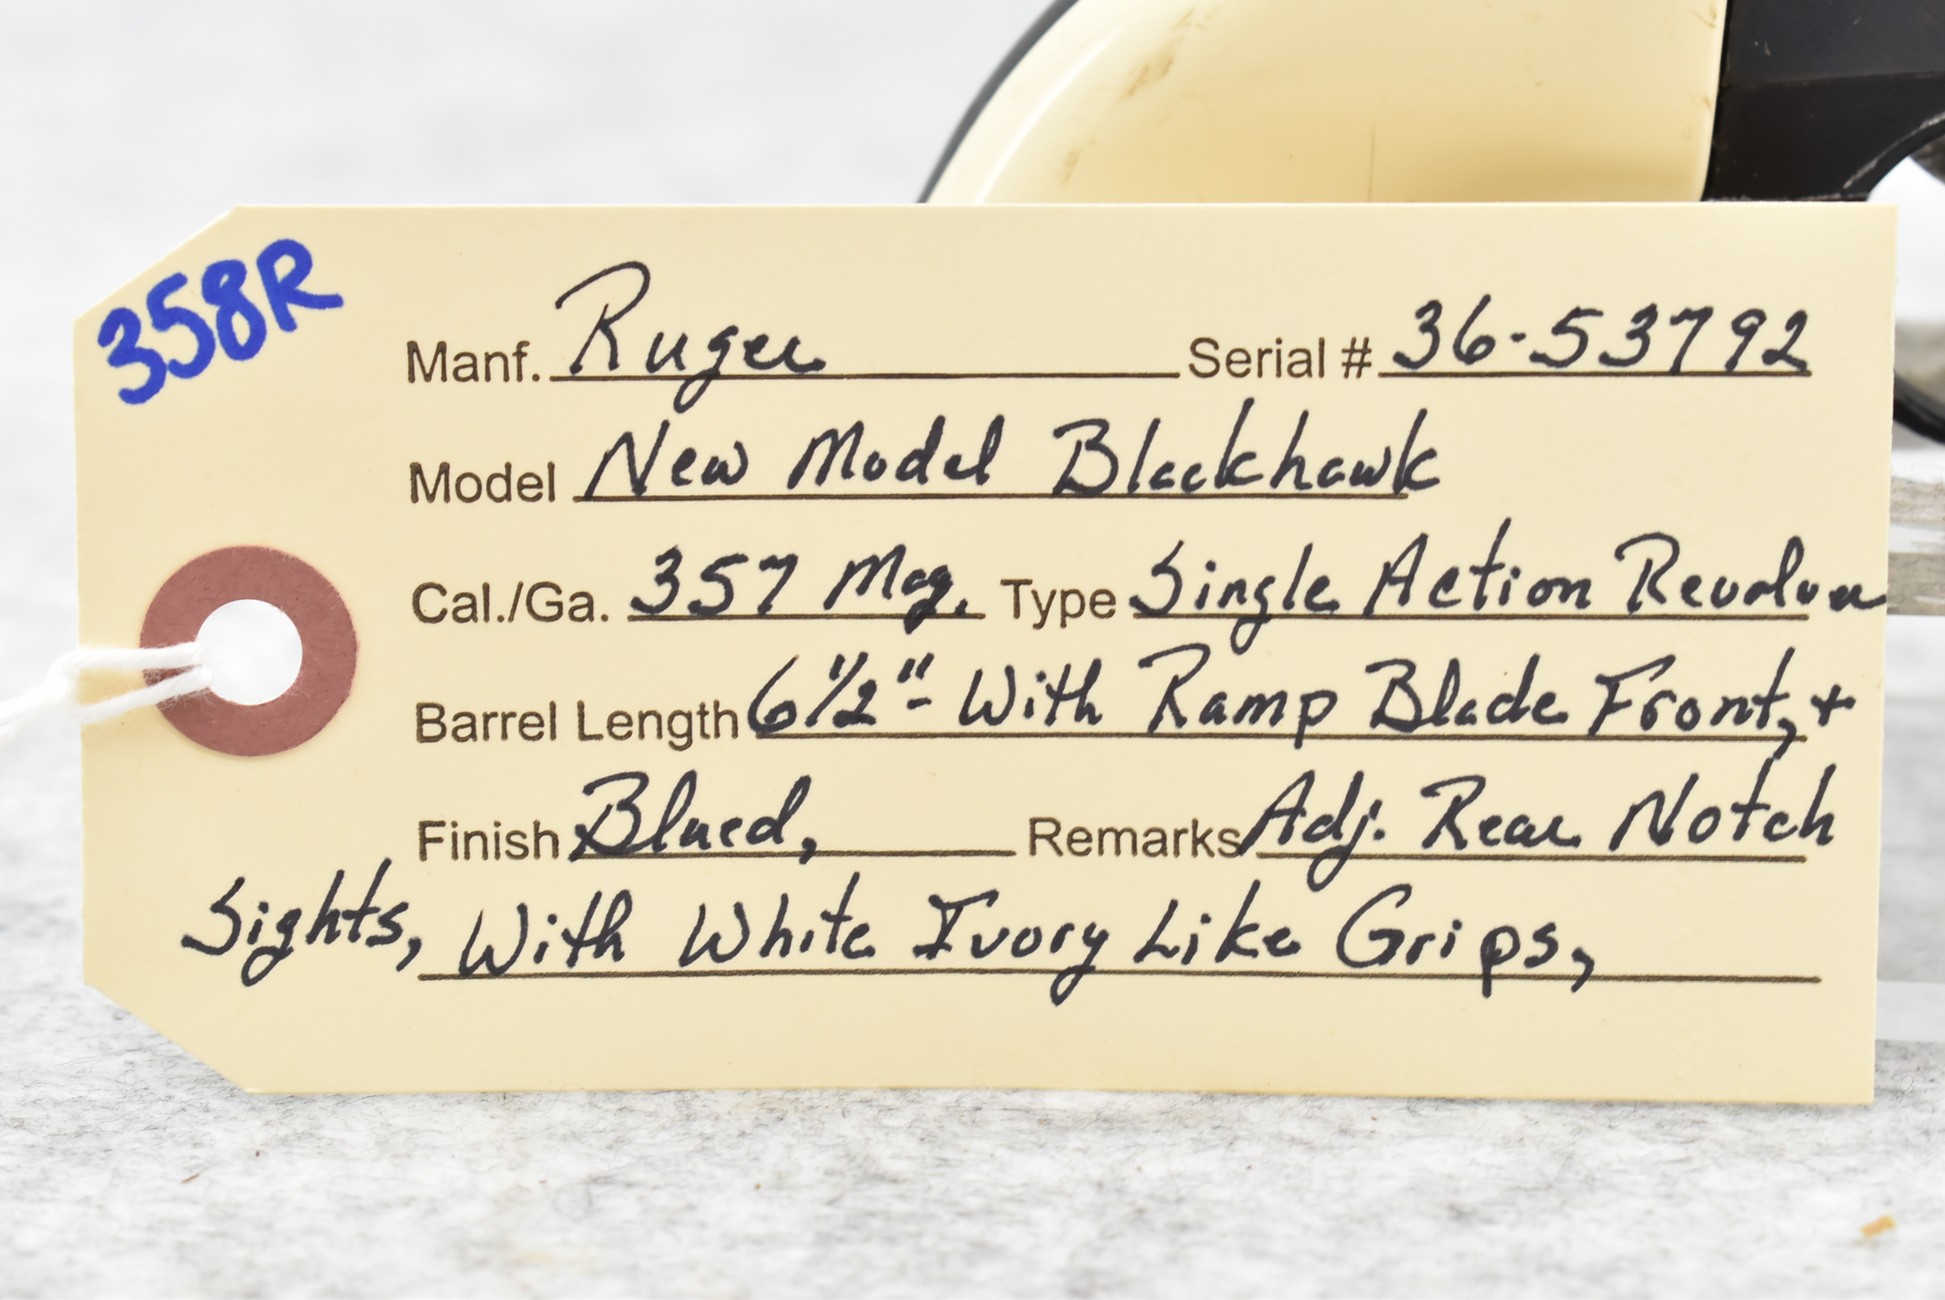 358R
Manf. Ruger Serial # 36-53792
Model New Model Blackhawk
Cal./Ga. 357 Mag. Type Single Action Revolver
Barrel Length 6 1/2" - With Ramp Blade Front, +
Finish Blued, Remarks Adj. Rear Notch
Sights, With White Ivory Like Grips,